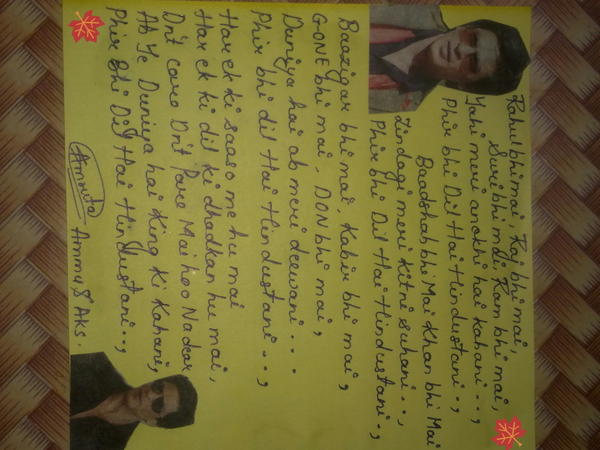 Rahul bhi mai, Raj bhi mai,
Suri bhi mai, Ram bhi mai,
Yahi meri anokhi hai kahani..,
Phir bhi Dil Hai Hindustani..,
Baadshah bhi Mai Khan bhi Mai
Zindagi meri kitni suhani..,
Phir bhi Dil Hai Hindustani..,
Baazigar bhi mai, Kabir bhi mai,
G-ONE bhi mai, DON bhi mai,
Duniya hai ab meri deewani...
Phir bhi dil Hai Hindustani...,
Har ek ki saaso me hu mai
Har ek ki dil ki dhadkan hu mai,
Dn't care Dn't Pare Mai hoo Nadkar
Ab Ye Duniya hai King Ki Kahani,
Phir Bhi Dil Hai Hindustani..,
Amruta Ammu & Aks.